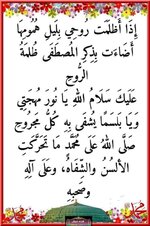 إِذَا أَظْلَمَت رُوحِي بِلَيلِ هُمُومِهَا
أَضَاءَت بِذِكرِ المُصطَفَى ظُلمَةُ
الرُّوحِ
عَلَيكَ سَلَامُ اللهِ يَا نُورَ مُهجَتِي
وَيَا بَلسَمًا يُشفَى بِهِ كُلُّ مَجرُوحِ
صَلَّى اللهُ عَلَى مُحَمَّدٍ مَا تَحَرَّكَتِ
الأَلسُنُ وَالشِّفَاهُ، وَعَلَى آلِهِ
وَصَحبِهِ